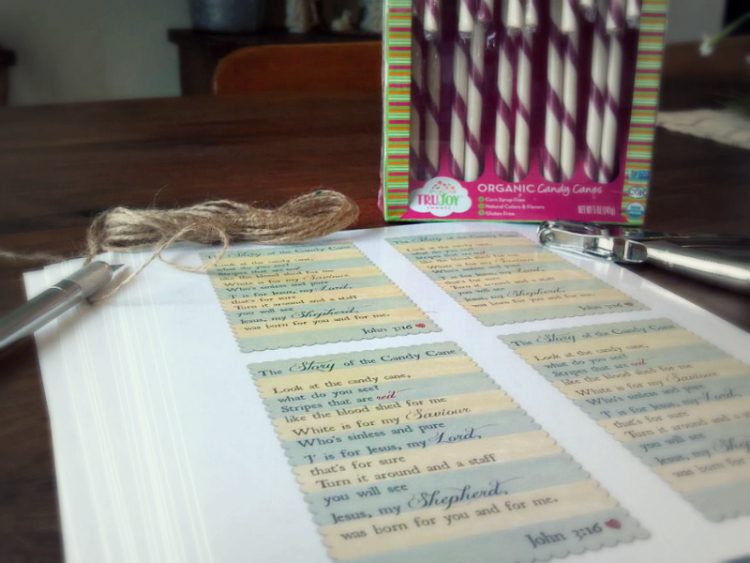 TRUJOY
SWEETS
ORGANIC Candy Canes
Corn Syrup Free
Natural Colors & Flavors
Gluten Free
NET WT 5 OZ (142g)
The Story of the Candy Cane
Look at the candy cane,
what do you see?
Stripes that are red
like the blood shed for me
White is for my Saviour
Who's sinless and pure
"J" is for Jesus, my Lord,
that's for sure
Turn it around and a staff
you will see
Jesus, my Shepherd,
was born for you and for me.
John 3:16
Story of the Candy Cane
Look at the candy cane,
what do you see?
Stripes that are red
like the blood shed for me
White is for my Saviour
Who's sinless and pure
"J" is for Jesus, my Lord,
that's for sure
Turn it around and a staff
you will see
Jesus, my Shepherd,
was born for you and for me.
John 3:16
The Story of the Candy Cane
Look at the candy cane,
what do you see?
Stripes that are red
like the blood shed for me
White is for my Saviour
Who's sinless and pure
'J' is for Jesus, my Lord,
that's for sure
Turn it around and a staff
you will see
Jesus, my Shepherd,
was born for you and for me.
John 3:16
The Story of the Candy Cane
Look at the candy cane,
what do you see?
Stripes that are red
like the blood shed for me
White is for my Saviour
Who's sinless and pure
'J' is for Jesus, my Lord,
that's for sure
Turn it around and a
you will see
Jesus, my Shepherd
was born for